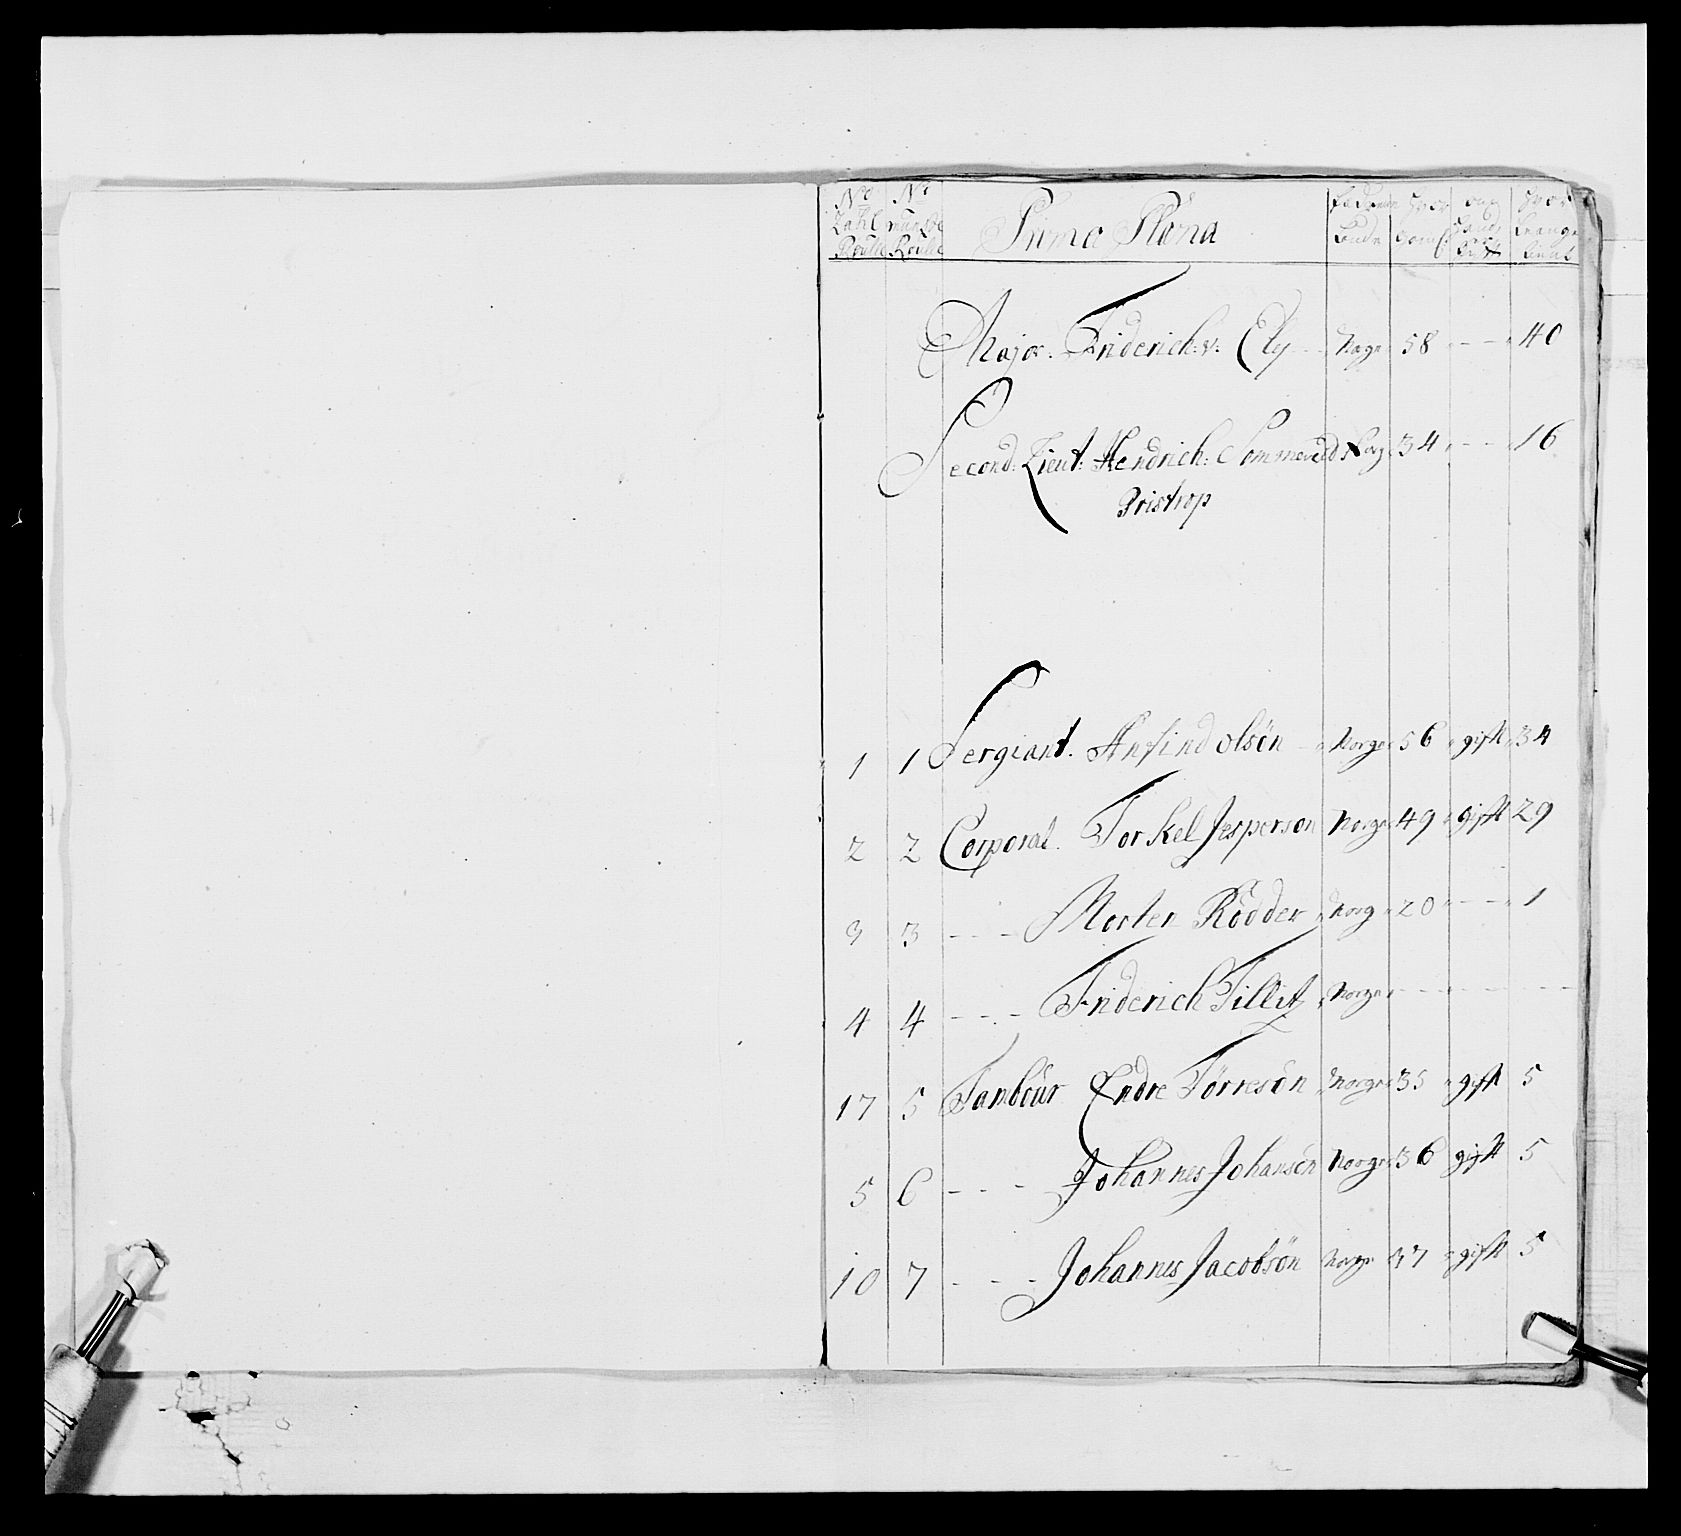 No No Prima Plana
Zahl
Roulle Roulle
Major. Friderich: v: Ely Norge 58 - - 40
Second: Lieut: Hendrich: Sommerved Norg 34 - - 16
Pristrop
1 1 Sergiant. Anfind olsön Norge 56 gift 34
2 2 Corporal. Torkel Jesperson Norge 49 gift 29
3 3 - - - Morten Rödder Norg 20 - - 1
4 4 - - - Friderich Tillist Norge - - - -
17 5 Tambour Endre Törresön Norge 35 gift 5
5 6 - - - Johannes Johansön Norge 36 gift 5
10 7 - - - Johannes Jacobsön Norge 37 gift 5